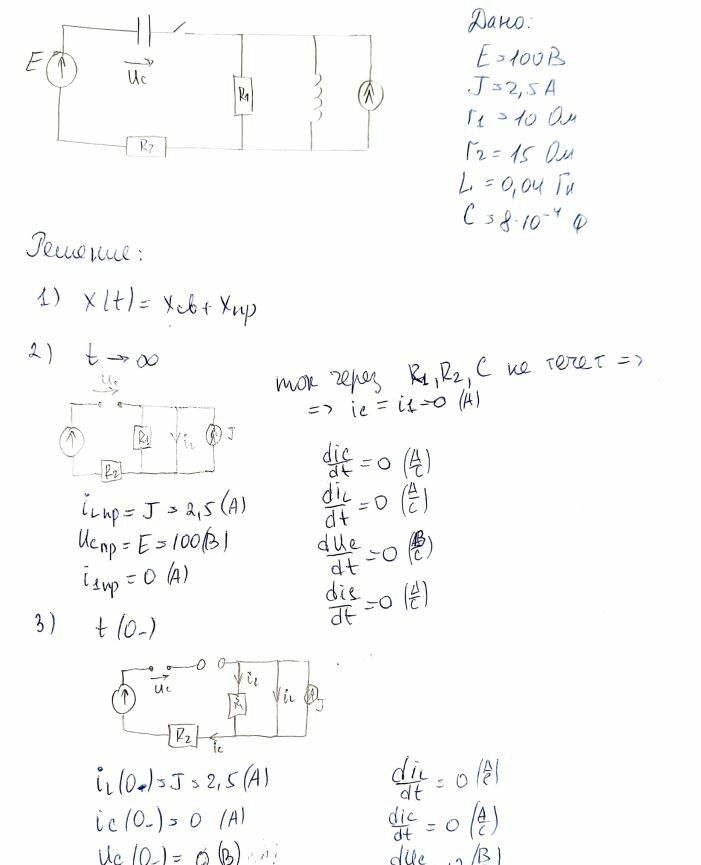 Дано:
E = 100 В
J = 2,5 А
r1 = 10 Ом
r2 = 15 Ом
L = 0,04 Гн
C = 8·10⁻⁴ Ф
E
Uc
R1
R2
Решение:
1) x(t) = xсв + xпр
2) t → ∞
ток через R1, R2, C не течет =>
=> ic = i1 = 0 (А)
Uc
R1
iL
J
R2
iLпр = J = 2,5 (А)
Ucпр = E = 100 (В)
i1пр = 0 (А)
dic/dt = 0 (А/с)
diL/dt = 0 (А/с)
dUc/dt = 0 (В/с)
di1/dt = 0 (А/с)
3) t (0-)
Uc
i1
R1
iL
J
R2
ic
iL(0-) = J = 2,5 (А)
ic(0-) = 0 (А)
Uc(0-) = 0 (В)
diL/dt = 0 (А/с)
dic/dt = 0 (А/с)
dUc